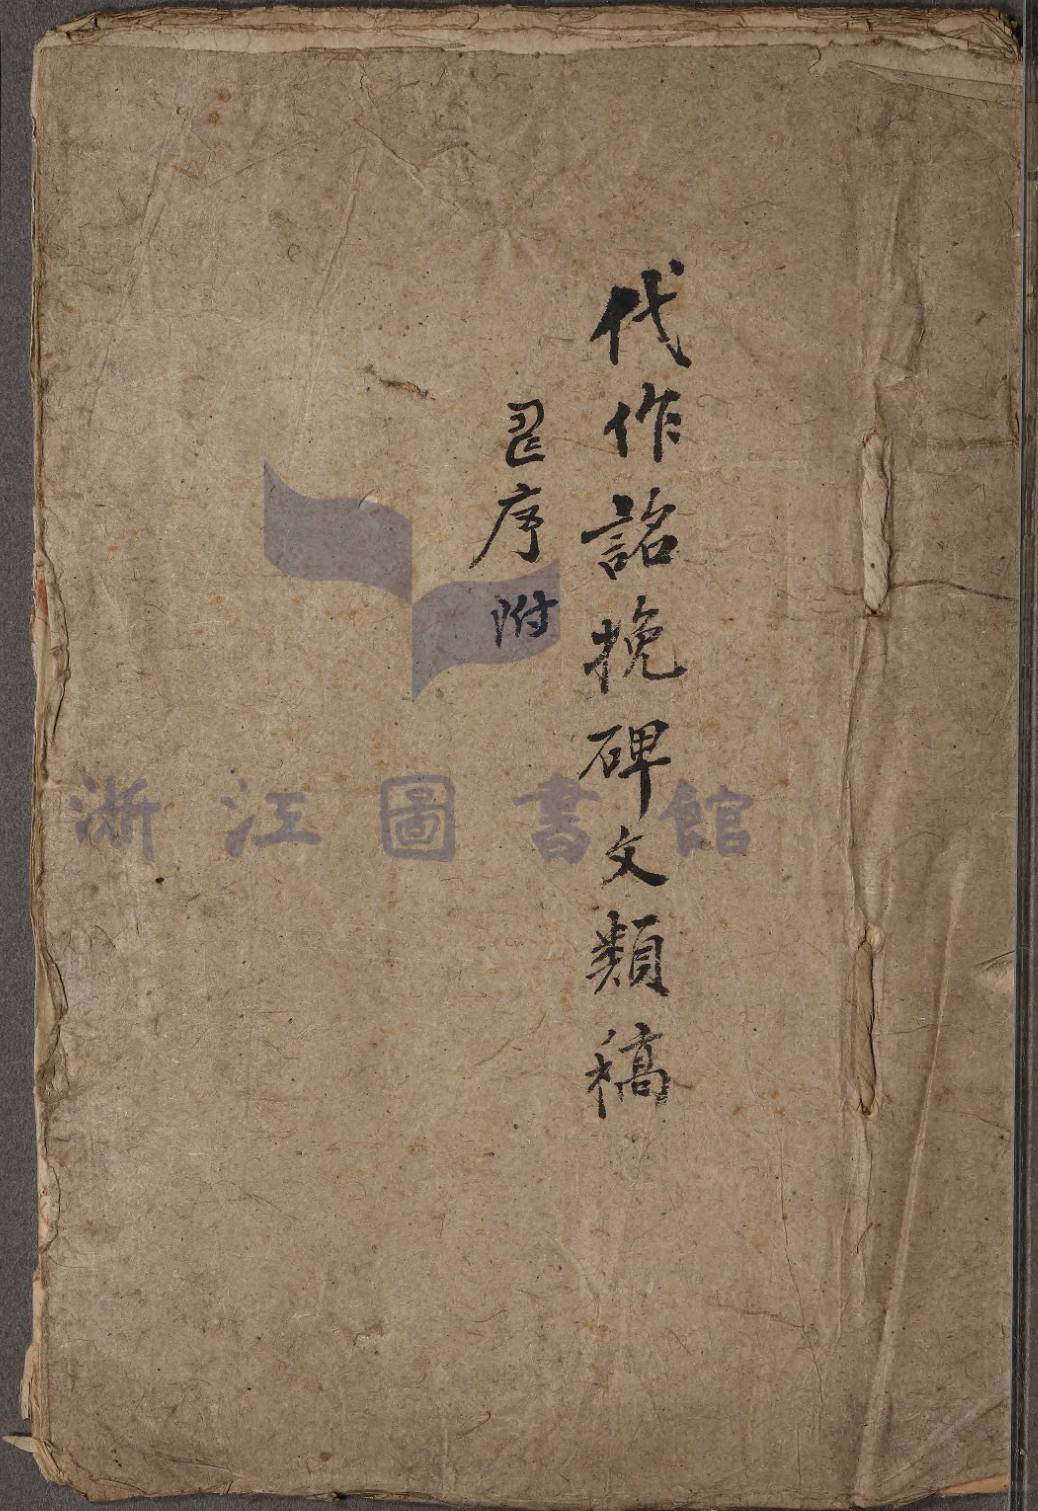 代作詺挽碑文類稿
序附
浙江圖書館